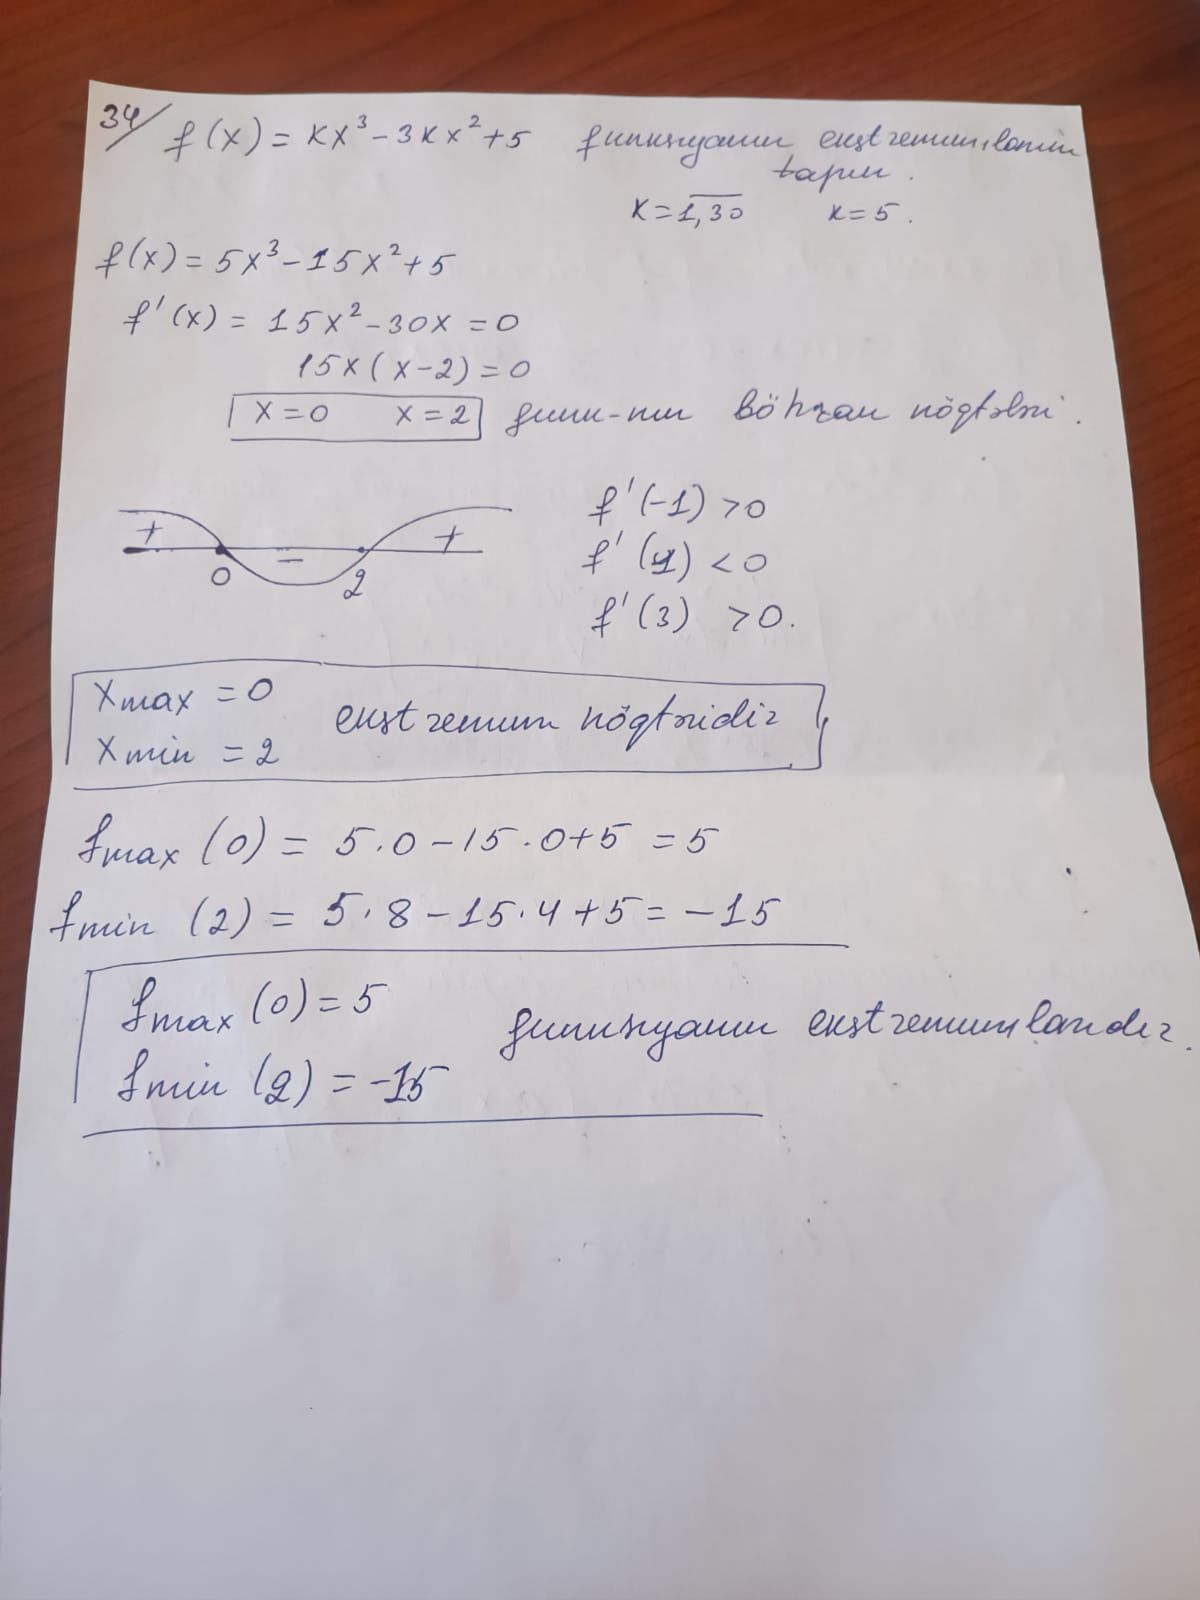 34/ f(x) = kx³ - 3kx² + 5 funksiyanın ekstremumlarını
tapın.
k = 1,30 k = 5.
f(x) = 5x³ - 15x² + 5
f'(x) = 15x² - 30x = 0
15x (x - 2) = 0
x = 0 x = 2 funk-nın böhran nöqtələri.
+ - +
0 2
f'(-1) > 0
f'(1) < 0
f'(3) > 0.
xmax = 0
xmin = 2
ekstremum nöqtəsidir
fmax (0) = 5·0 - 15·0 + 5 = 5
fmin (2) = 5·8 - 15·4 + 5 = -15
fmax (0) = 5
fmin (2) = -15
funksiyanın ekstremumlarıdır.